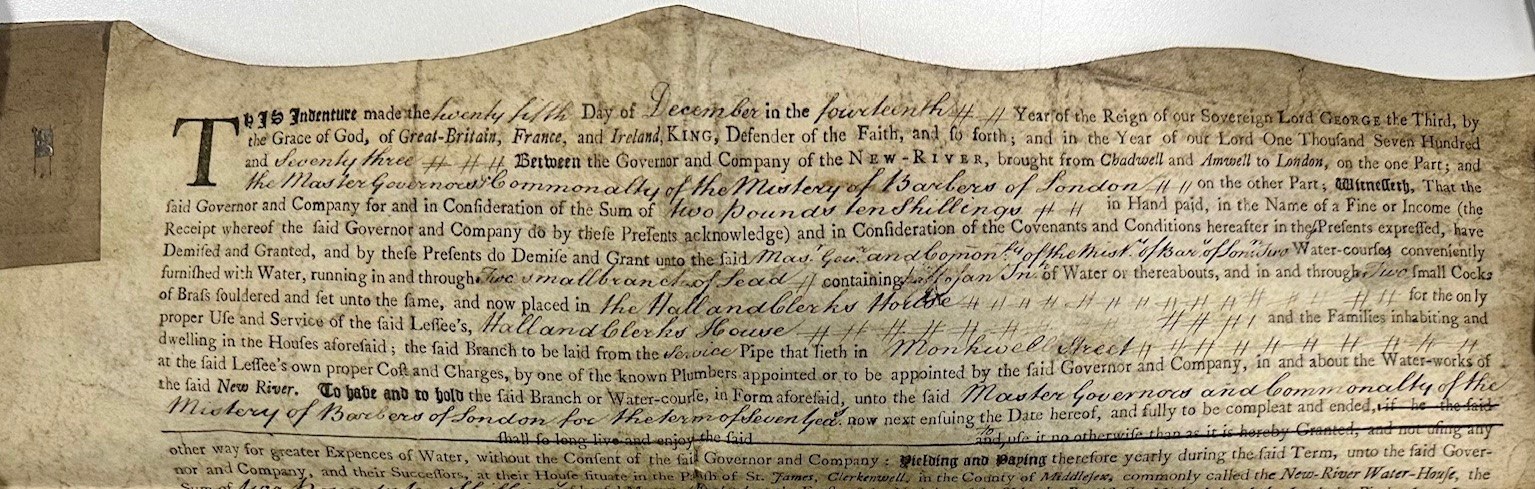 THIS Indenture made the twenty fifth Day of December in the fourteenth # # Year of the Reign of our Sovereign Lord GEORGE the Third, by
the Grace of God, of Great-Britain, France, and Ireland, KING, Defender of the Faith, and ſo forth; and in the Year of our Lord One Thouſand Seven Hundred
and Seventy three # # # Between the Governor and Company of the NEW-RIVER, brought from Chadwell and Amwell to London, on the one Part; and
the Master Governors & Commonalty of the Mistery of Barbers of London # # on the other Part; Witneſſeth, That the
ſaid Governor and Company for and in Conſideration of the Sum of two pounds ten Shillings # # in Hand paid, in the Name of a Fine or Income (the
Receipt whereof the ſaid Governor and Company do by theſe Preſents acknowledge) and in Conſideration of the Covenants and Conditions hereafter in theſe Preſents expreſſed, have
Demiſed and Granted, and by theſe Preſents do Demiſe and Grant unto the ſaid Mas.r Gov.rs and Comon.ty of the Mist.y of Bar.rs of Lon.n Two Water-courſes conveniently
furniſhed with Water, running in and through Two small branch of Lead # containing half of an In.h of Water or thereabouts, and in and through Two ſmall Cocks
of Braſs ſouldered and ſet unto the ſame, and now placed in the Hall and Clerks House # # # # # # # # # # # for the only
proper Uſe and Service of the ſaid Leſſee's, Hall and Clerks House # # # # # # # # # and the Families inhabiting and
dwelling in the Houſes aforeſaid; the ſaid Branch to be laid from the Service Pipe that lieth in Monkwell Street # # # # # # # # #
at the ſaid Leſſee's own proper Coſt and Charges, by one of the known Plumbers appointed or to be appointed by the ſaid Governor and Company, in and about the Water-works of
the ſaid New River. To have and to hold the ſaid Branch or Water-courſe, in Form aforeſaid, unto the ſaid Master Governors and Commonalty of the
Mistery of Barbers of London for the term of Seven Yea.rs now next enſuing the Date hereof, and fully to be compleat and ended, if he the ſaid
ſhall ſo long live and enjoy the ſaid and to uſe it no otherwiſe than as it is hereby Granted, and not uſing any
other way for greater Expences of Water, without the Conſent of the ſaid Governor and Company: Yielding and Paying therefore yearly during the ſaid Term, unto the ſaid Gover-
nor and Company, and their Succeſſors, at their Houſe ſituate in the Pariſh of St. James, Clerkenwell, in the County of Middleſex, commonly called the New-River Water-Houſe, the
Sum of